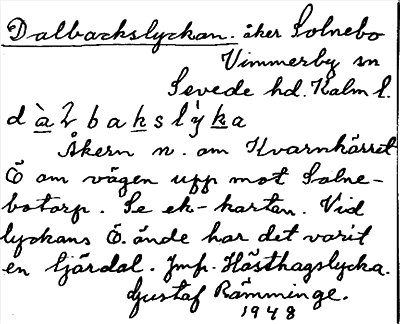 Dalbackslyckan. åker Solnebo
Vimmerby sn
Sevede hd. Kalm l.
dàλbakslỳka
Åkern n. om Kvarnkärret
Ö om vägen upp mot Solne-
botorp. Se ek-kartan. Vid
lyckans Ö. ände har det varit
en Gärdal. Jmf. Hästhagslycka.
Gustaf Rämminge.
1948